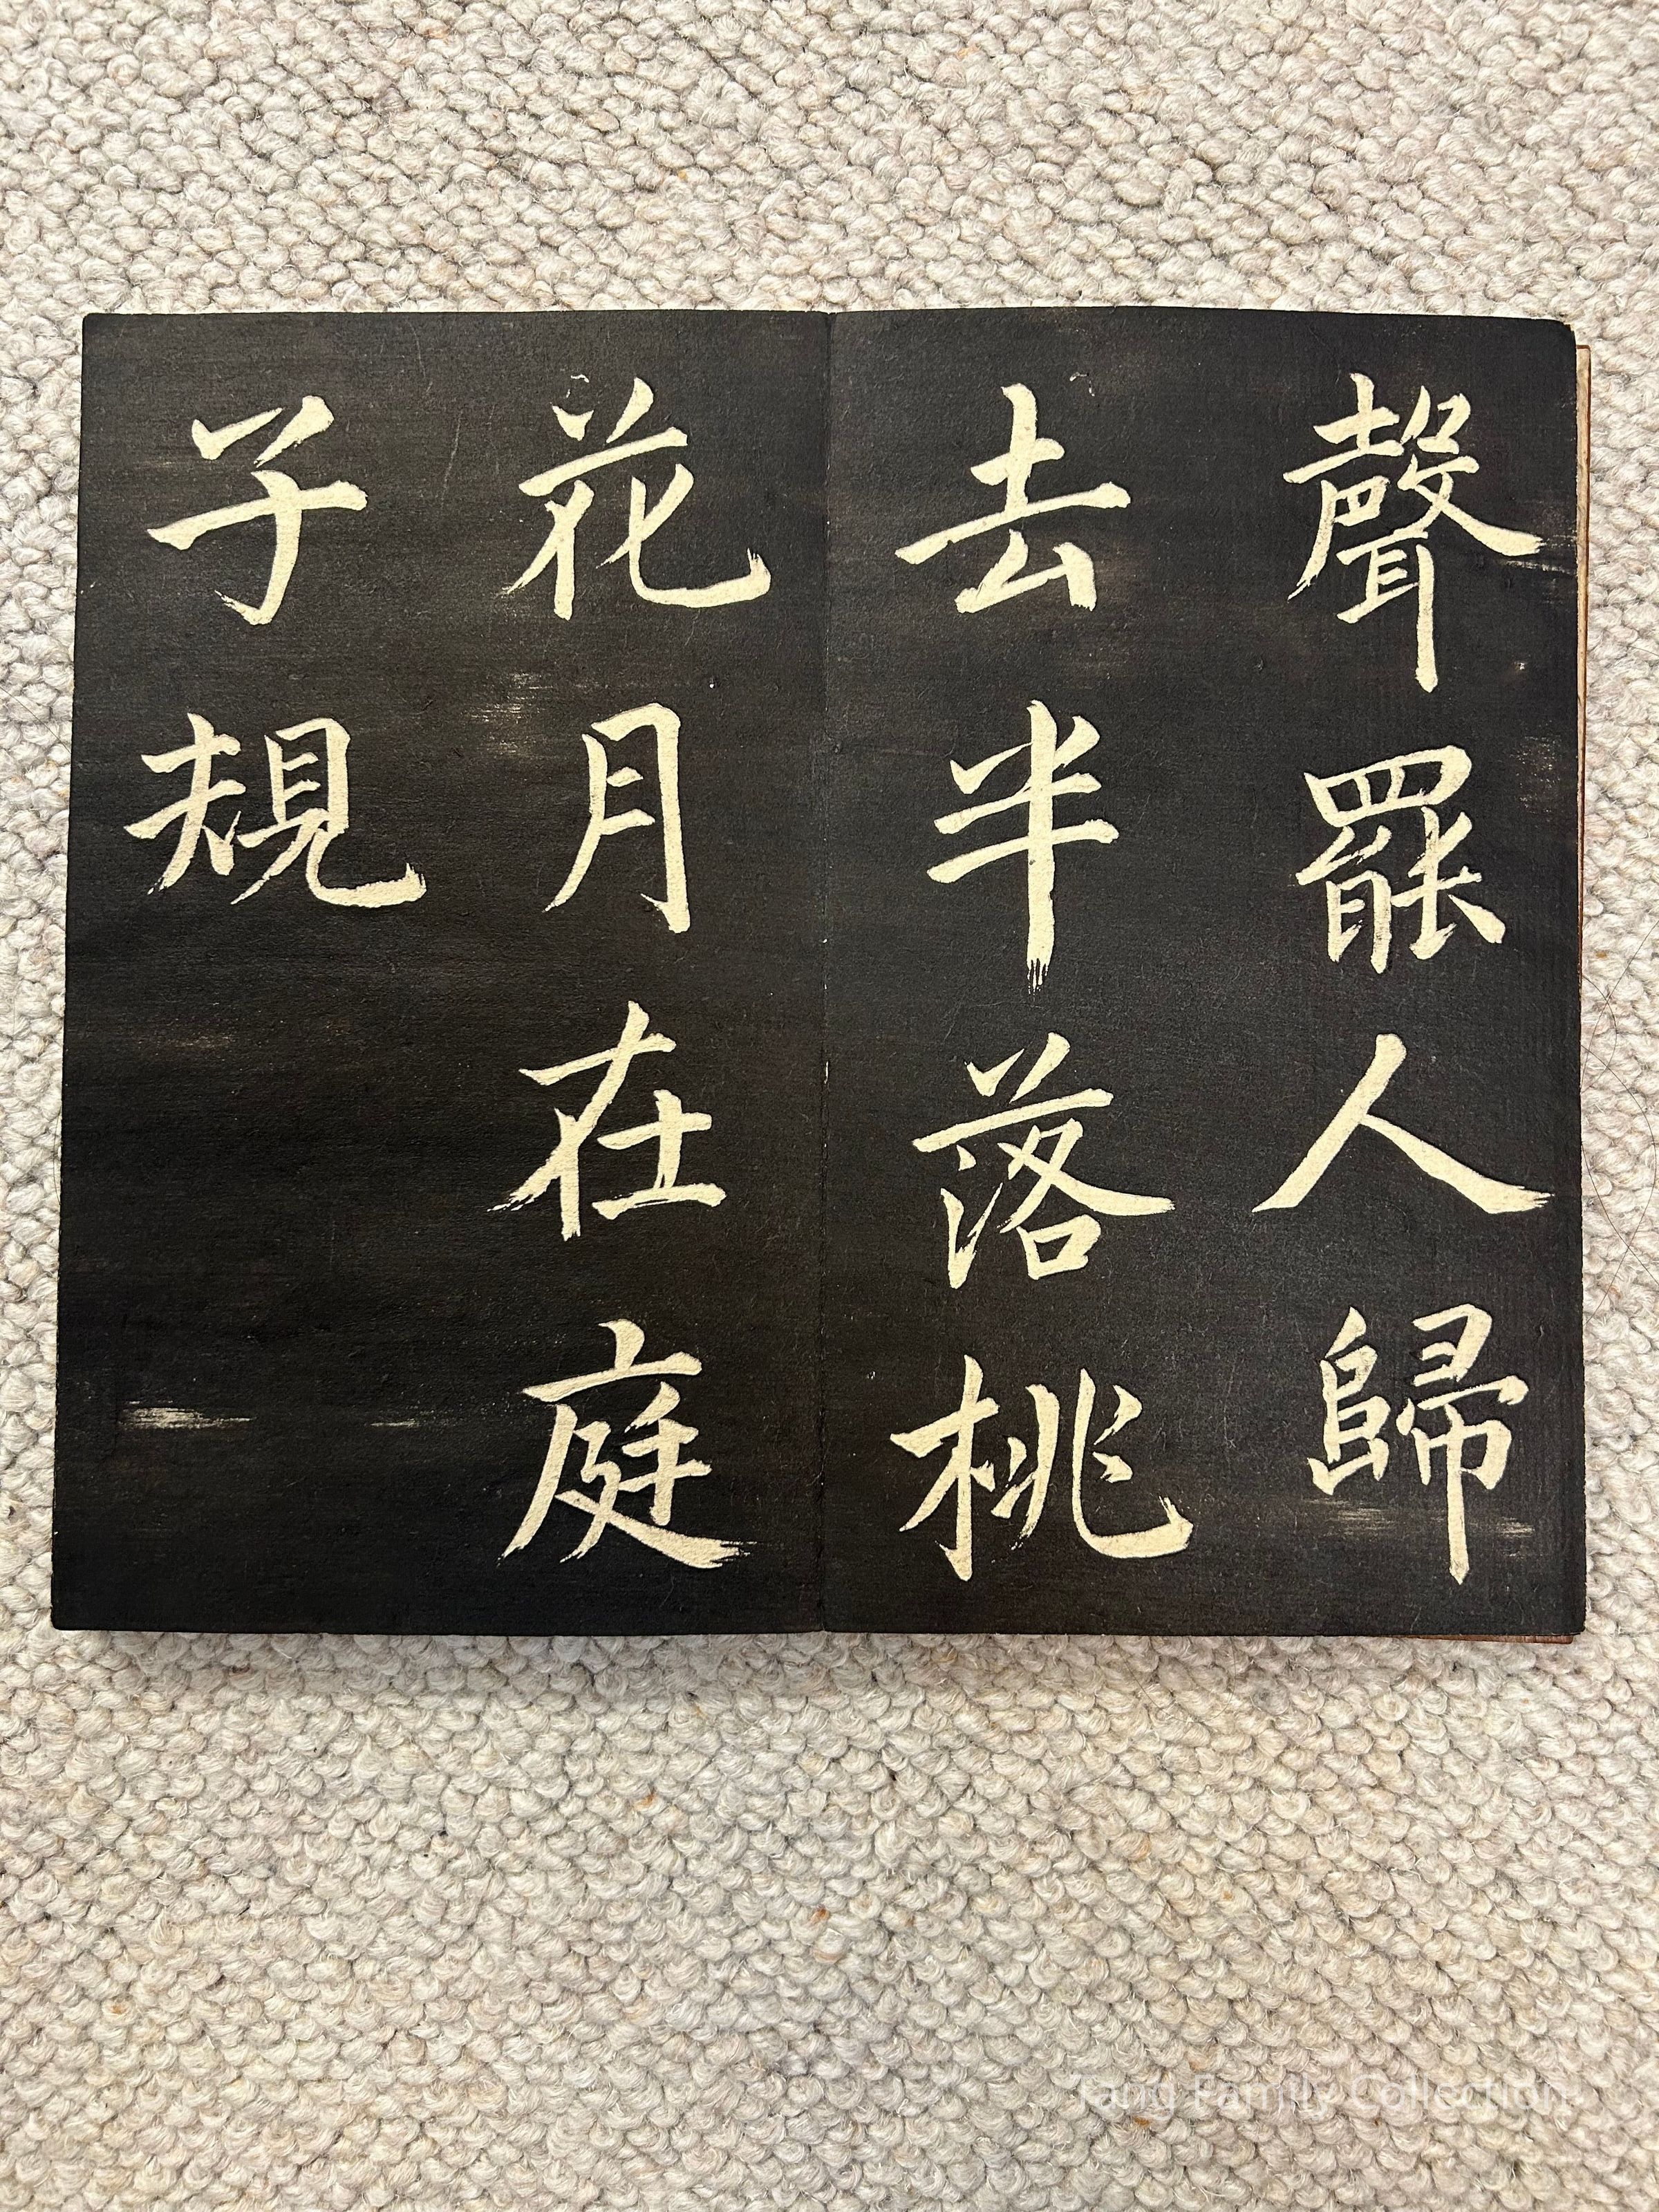 聲罷人歸
去半落桃
花月在庭
子規
Tang Family Collection